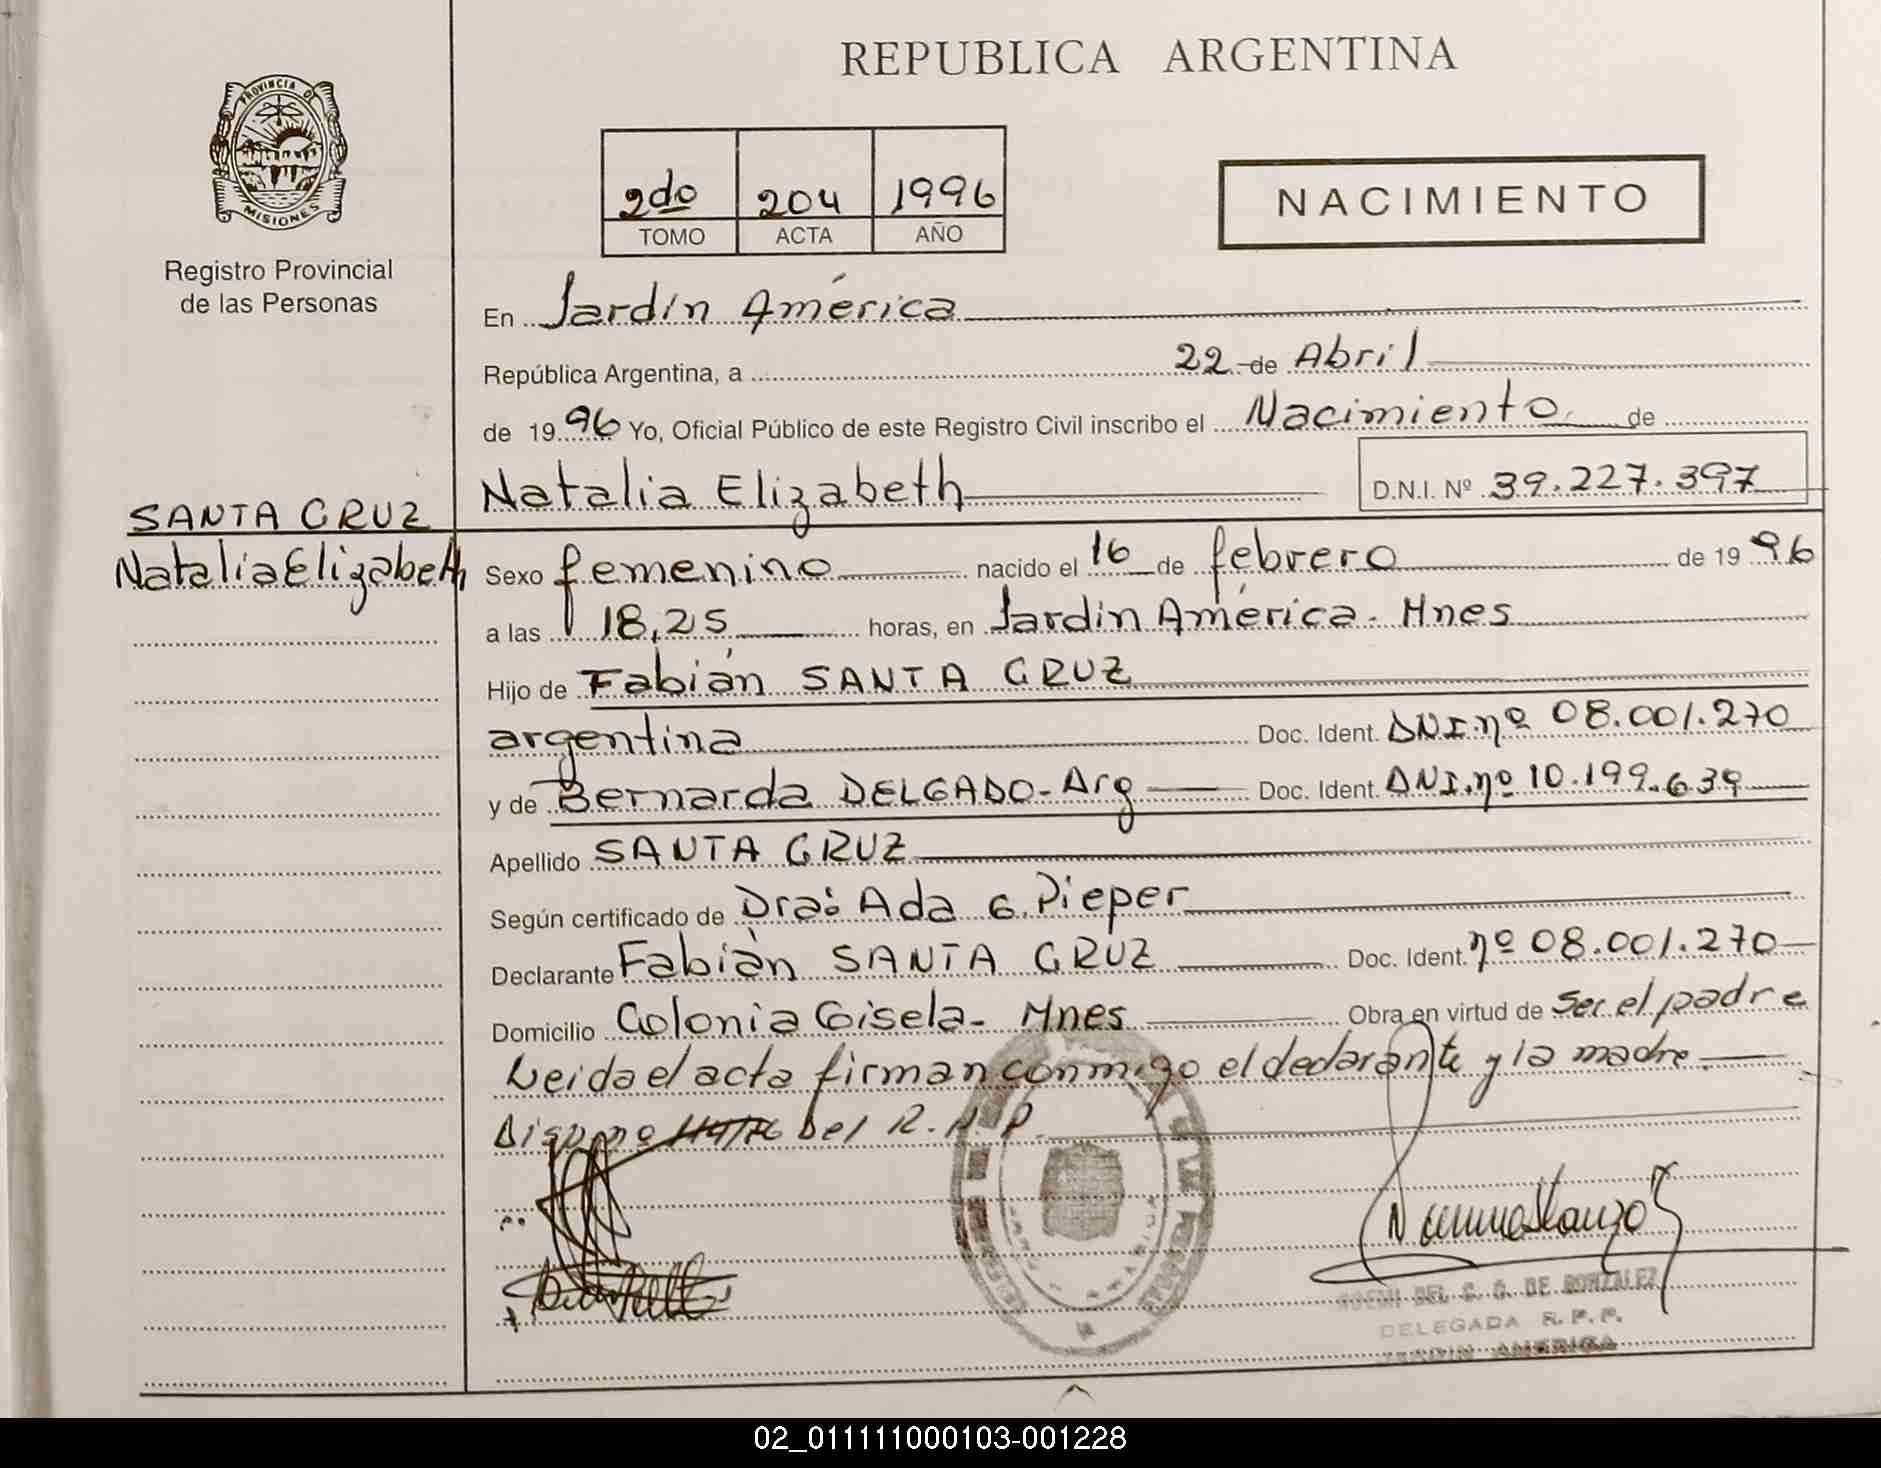 REPUBLICA ARGENTINA
PROVINCIA DE
MISIONES
Registro Provincial
de las Personas
2do 204 1996
TOMO ACTA AÑO
NACIMIENTO
En Jardín América
República Argentina, a 22 de Abril
de 1996 Yo, Oficial Público de este Registro Civil inscribo el Nacimiento de
Natalia Elizabeth D.N.I. Nº 39.227.397
SANTA CRUZ
Natalia Elizabeth
Sexo femenino nacido el 16 de febrero de 1996
a las 18,25 horas, en Jardín América. Mnes
Hijo de Fabián SANTA CRUZ
argentina Doc. Ident. DNI.nº 08.001.270
y de Bernarda DELGADO-Arg Doc. Ident. DNI.nº 10.199.639
Apellido SANTA CRUZ
Según certificado de Dra: Ada G. Pieper
Declarante Fabián SANTA CRUZ Doc. Ident. nº 08.001.270
Domicilio Colonia Gisela- Mnes Obra en virtud de ser el padre
Leida el acta firman conmigo el declarante y la madre.
Del R. P.
NOEMI DEL C. G. DE GONZALEZ
DELEGADA R.P.P.
JARDIN AMERICA
02_011111000103-001228